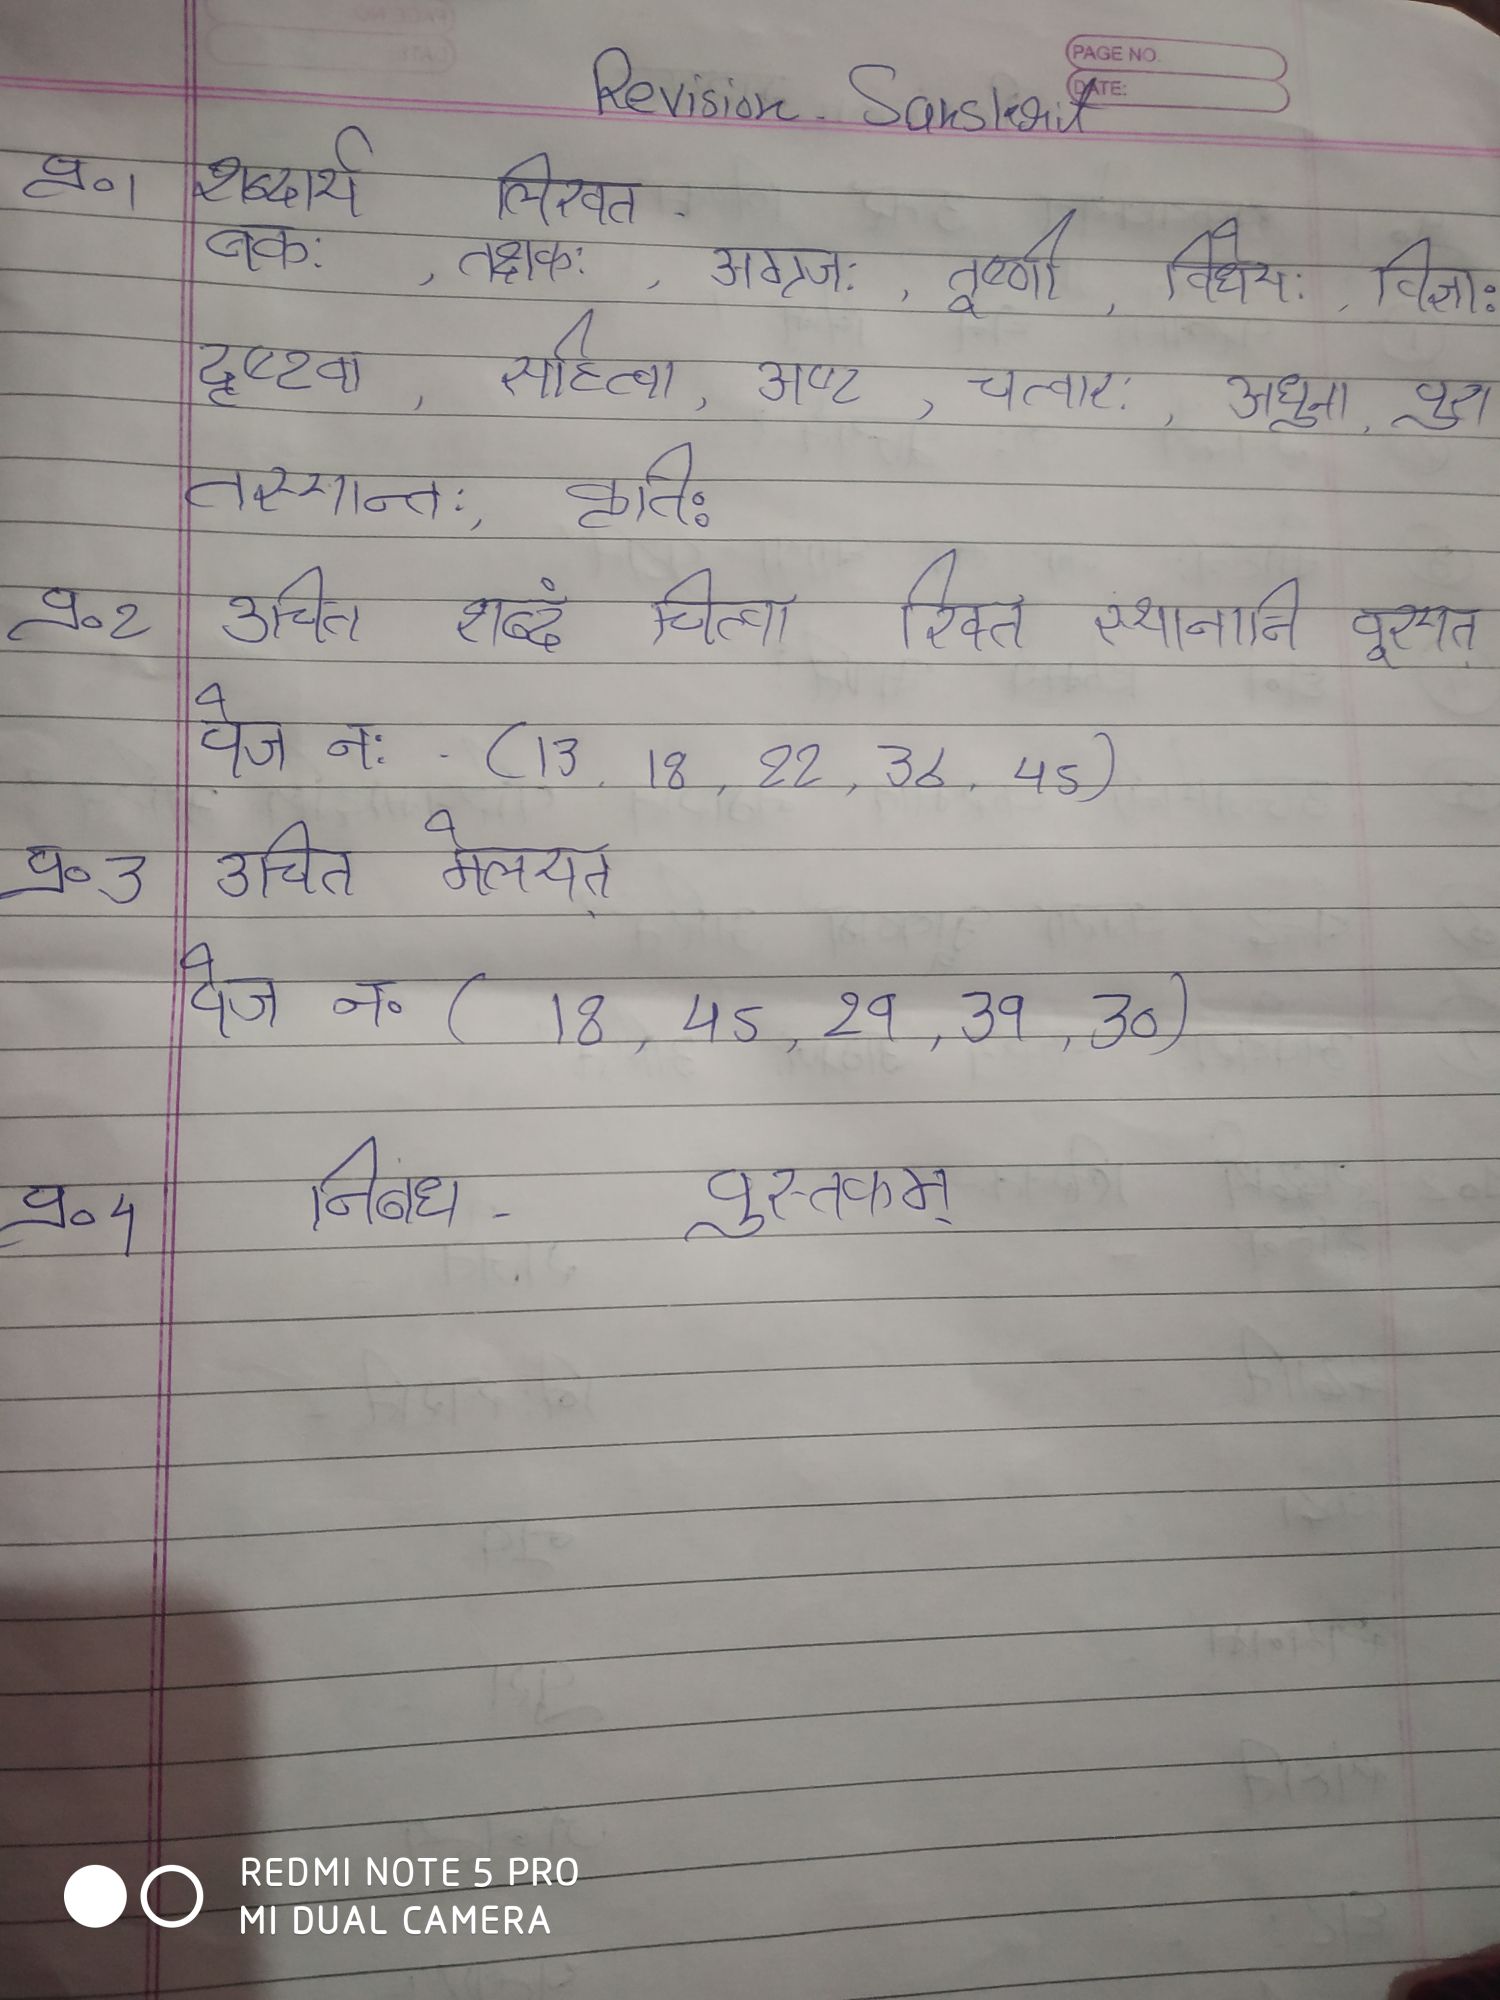 PAGE NO.
DATE:
Revision - Sanskrit
प्र०1 शब्दार्थ लिखत -
बकः , तक्षकः , अग्रजः , तूर्ष्णी , विधेयः , विज्ञाः
दृष्टवा , सहित्वा , अष्ट , चत्वारः , अधुना , पुरा
तस्यान्तः, कृतिः
प्र०2 उचित शब्दं चित्वा रिक्त स्थानानि पूरयत्
पेज नः - (13, 18, 22, 36, 45)
प्र०3 उचित मेलयत्
पेज न० ( 18, 45, 29, 39, 30)
प्र०4 निबंध - पुस्तकम्
REDMI NOTE 5 PRO
MI DUAL CAMERA